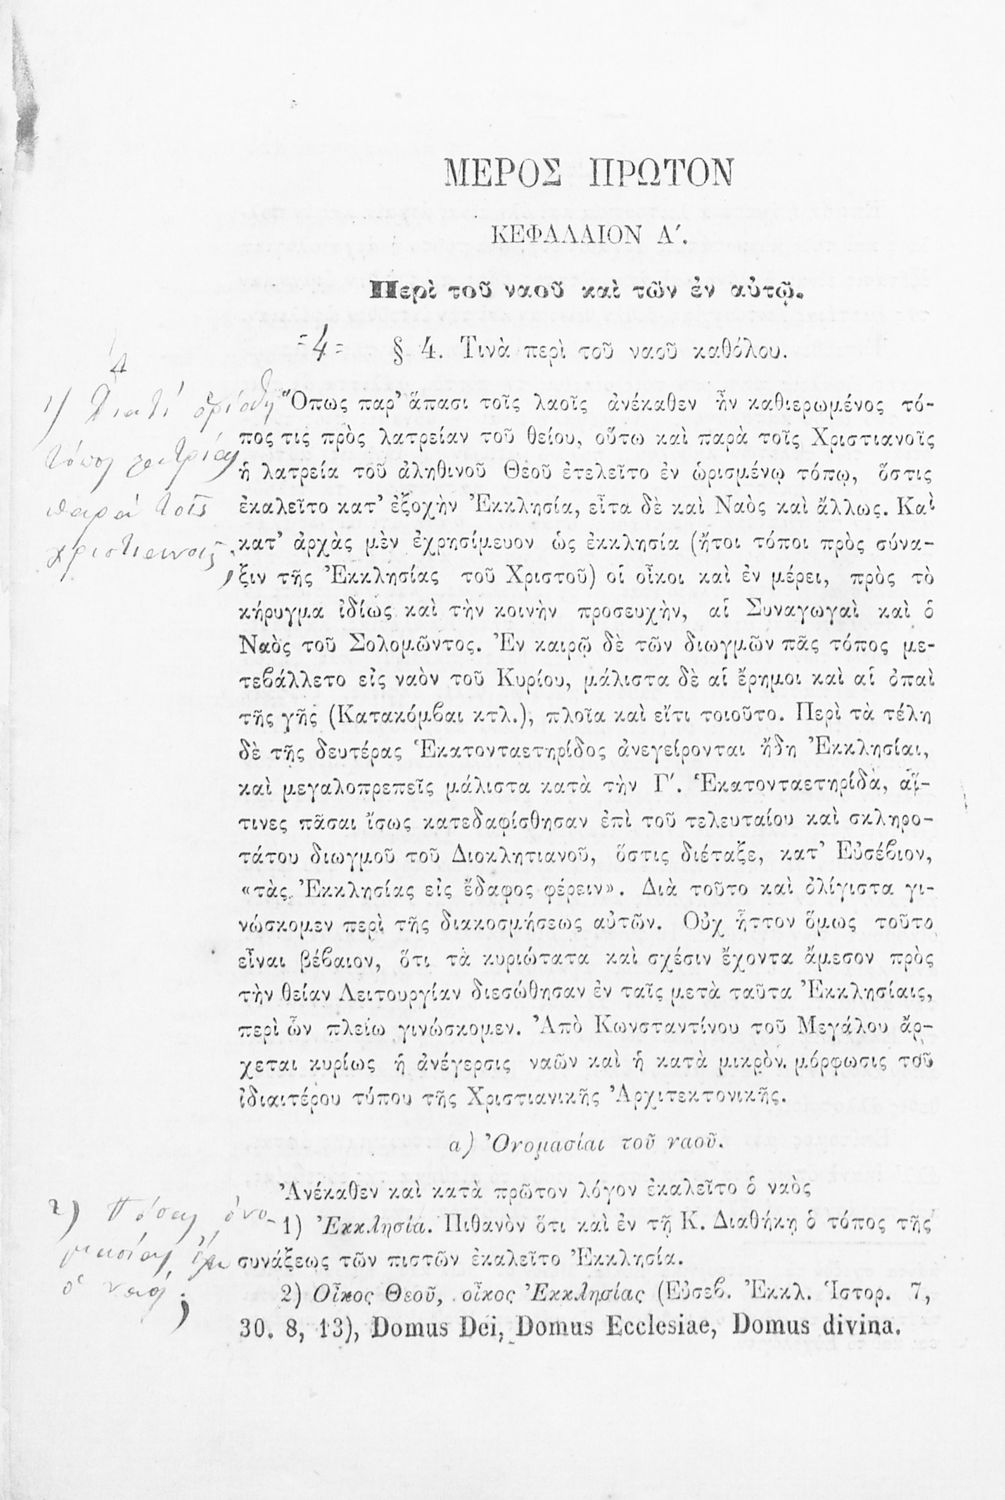 ΜΕΡΟΣ ΠΡΩΤΟΝ
ΚΕΦΑΛΑΙΟΝ Α΄.
Περὶ τοῦ ναοῦ καὶ τῶν ἐν αὐτῷ.
=4= § 4. Τινὰ περὶ τοῦ ναοῦ καθόλου.
4
1) Διατί ὡρίσθη
τόπος λατρείας
παρά τοῖς
χριστιανοῖς;
Ὅπως παρ' ἅπασι τοῖς λαοῖς ἀνέκαθεν ἦν καθιερωμένος τό-
πος τις πρὸς λατρείαν τοῦ θείου, οὕτω καὶ παρὰ τοῖς Χριστιανοῖς
ἡ λατρεία τοῦ ἀληθινοῦ Θεοῦ ἐτελεῖτο ἐν ὡρισμένῳ τόπῳ, ὅστις
ἐκαλεῖτο κατ' ἐξοχὴν Ἐκκλησία, εἶτα δὲ καὶ Ναὸς καὶ ἄλλως. Καὶ
κατ' ἀρχὰς μὲν ἐχρησίμευον ὡς ἐκκλησία (ἤτοι τόποι πρὸς σύνα-
ξιν τῆς Ἐκκλησίας τοῦ Χριστοῦ) οἱ οἶκοι καὶ ἐν μέρει, πρὸς τὸ
κήρυγμα ἰδίως καὶ τὴν κοινὴν προσευχὴν, αἱ Συναγωγαὶ καὶ ὁ
Ναὸς τοῦ Σολομῶντος. Ἐν καιρῷ δὲ τῶν διωγμῶν πᾶς τόπος με-
τεβάλλετο εἰς ναὸν τοῦ Κυρίου, μάλιστα δὲ αἱ ἔρημοι καὶ αἱ ὀπαὶ
τῆς γῆς (Κατακόμβαι κτλ.), πλοῖα καὶ εἴτι τοιοῦτο. Περὶ τὰ τέλη
δὲ τῆς δευτέρας Ἑκατονταετηρίδος ἀνεγείρονται ἤδη Ἐκκλησίαι,
καὶ μεγαλοπρεπεῖς μάλιστα κατὰ τὴν Γ΄. Ἑκατονταετηρίδα, αἵ-
τινες πᾶσαι ἴσως κατεδαφίσθησαν ἐπὶ τοῦ τελευταίου καὶ σκληρο-
τάτου διωγμοῦ τοῦ Διοκλητιανοῦ, ὅστις διέταξε, κατ' Εὐσέβιον,
«τὰς Ἐκκλησίας εἰς ἔδαφος φέρειν». Διὰ τοῦτο καὶ ὀλίγιστα γι-
νώσκομεν περὶ τῆς διακοσμήσεως αὐτῶν. Οὐχ ἧττον ὅμως τοῦτο
εἶναι βέβαιον, ὅτι τὰ κυριώτατα καὶ σχέσιν ἔχοντα ἄμεσον πρὸς
τὴν θείαν Λειτουργίαν διεσώθησαν ἐν ταῖς μετὰ ταῦτα Ἐκκλησίαις,
περὶ ὧν πλείω γινώσκομεν. Ἀπὸ Κωνσταντίνου τοῦ Μεγάλου ἄρ-
χεται κυρίως ἡ ἀνέγερσις ναῶν καὶ ἡ κατὰ μικρὸν μόρφωσις τοῦ
ἰδιαιτέρου τύπου τῆς Χριστιανικῆς Ἀρχιτεκτονικῆς.
α) Ὀνομασίαι τοῦ ναοῦ.
Ἀνέκαθεν καὶ κατὰ πρῶτον λόγον ἐκαλεῖτο ὁ ναὸς
2) Πόσας ὀνο-
μασίας ἔχει
ὁ ναός;
1) Ἐκκλησία. Πιθανὸν ὅτι καὶ ἐν τῇ Κ. Διαθήκῃ ὁ τόπος τῆς
συνάξεως τῶν πιστῶν ἐκαλεῖτο Ἐκκλησία.
2) Οἶκος Θεοῦ, οἶκος Ἐκκλησίας (Εὐσεβ. Ἐκκλ. Ἱστορ. 7,
30. 8, 13), Domus Dei, Domus Ecclesiae, Domus divina.